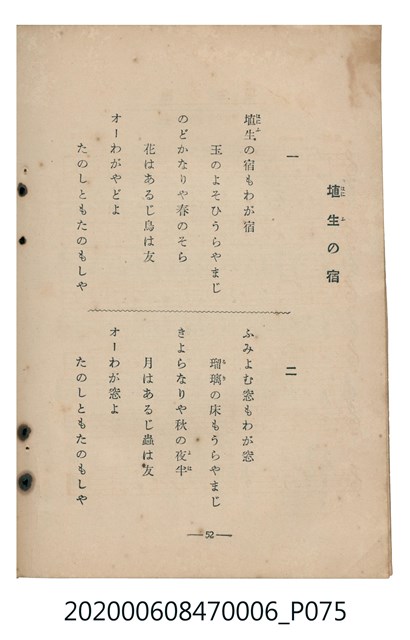 埴生の宿
一
埴生の宿もわが宿
玉のよそひうらやまじ
のどかなりや春のそら
花はあるじ鳥は友
オーわがやどよ
たのしともたのもしや
二
ふみよむ窓もわが窓
瑠璃の床もうらやまじ
きよらなりや秋の夜半
月はあるじ蟲は友
オーわが窓よ
たのしともたのもしや
—52—
202000608470006_P075